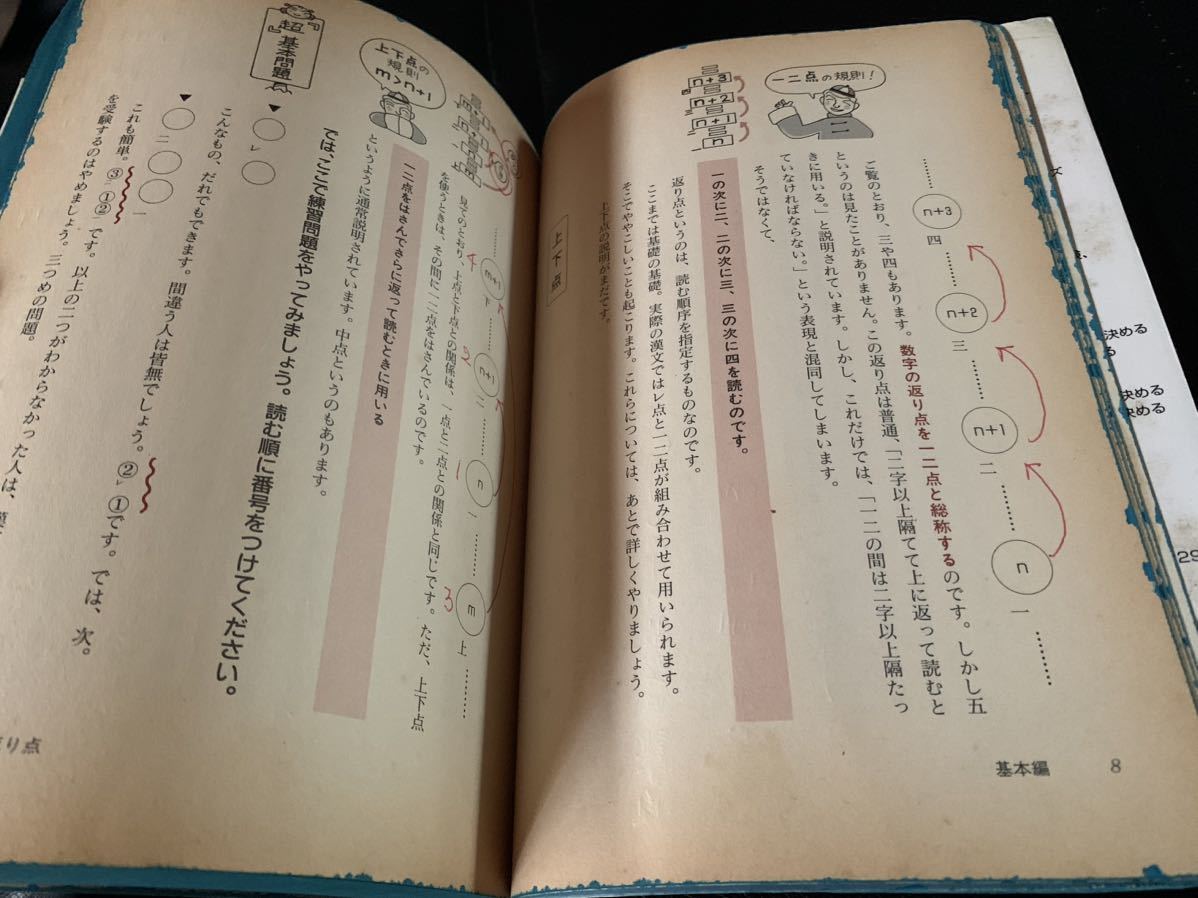 ………
n+3
四
………
n+2
三
………
n+1
二
………
n
一
………
ご覧のとおり、三や四もあります。数字の返り点を一二点と総称するのです。しかし五
というのは見たことがありません。この返り点は普通、「二字以上隔てて上に返って読むと
きに用いる。」と説明されています。しかし、これだけでは、「一二の間は二字以上隔たっ
ていなければならない。」という表現と混同してしまいます。
そうではなくて、
一二点の規則！
二
n+3
三
n+2
二
n+1
一
n
一の次に二、二の次に三、三の次に四を読むのです。
返り点というのは、読む順序を指定するものなのです。
ここまでは基礎の基礎。実際の漢文ではレ点と一二点が組み合わせて用いられます。
そこでややこしいことも起こります。これらについては、あとで詳しくやりましょう。
上下点の説明がまだです。
基本編 8
上下点
………
4
m+1
下
………
2
n+1
二
………
1
n
一
………
3
m
上
………
見てのとおり、上点と下点との関係は、一点と二点との関係と同じです。ただ、上下点
を使うときは、その間に一二点をはさんでいるのです。
上下点の
規則
m>n+1
一二点をはさんでさらに返って読むときに用いる
というように通常説明されています。中点というのもあります。
では、ここで練習問題をやってみましょう。読む順に番号をつけてください。
『超』基本問題
▼○レ○
こんなもの、だれでもできます。間違う人は皆無でしょう。②レ①です。では、次。
▼○二○○一
これも簡単。③二①②一です。以上の二つがわからなかった人は、
を受験するのはやめましょう。三つめの問題。
り点
決める
る
決める
決める
29